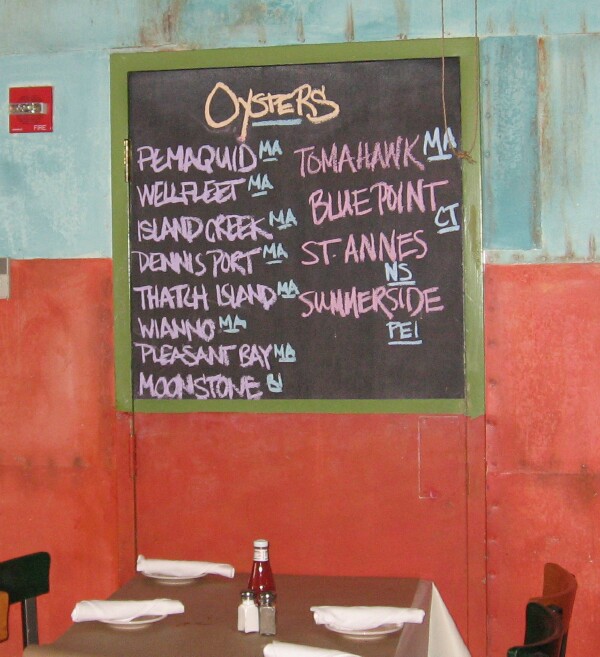 OYSTERS
PEMAQUID MA
WELLFLEET MA
ISLAND CREEK MA
DENNIS PORT MA
THATCH ISLAND MA
WIANNO MA
PLEASANT BAY MA
MOONSTONE
TOMAHAWK MA
BLUE POINT
CT
ST. ANNES
NS
SUMMERSIDE
PEI
FIRE